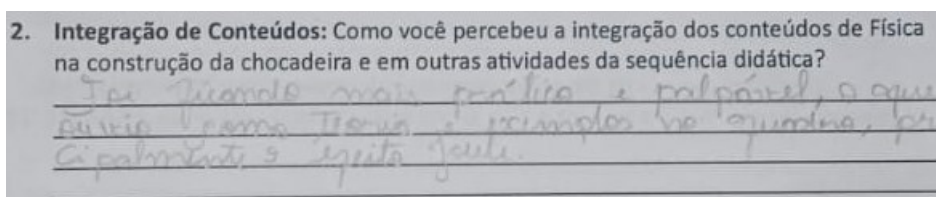 2. Integração de Conteúdos: Como você percebeu a integração dos conteúdos de Física
na construção da chocadeira e em outras atividades da sequência didática?
Foi ficando mais prático e palpável, o que
como e exemplos no
cipalmente o efeito Joule.